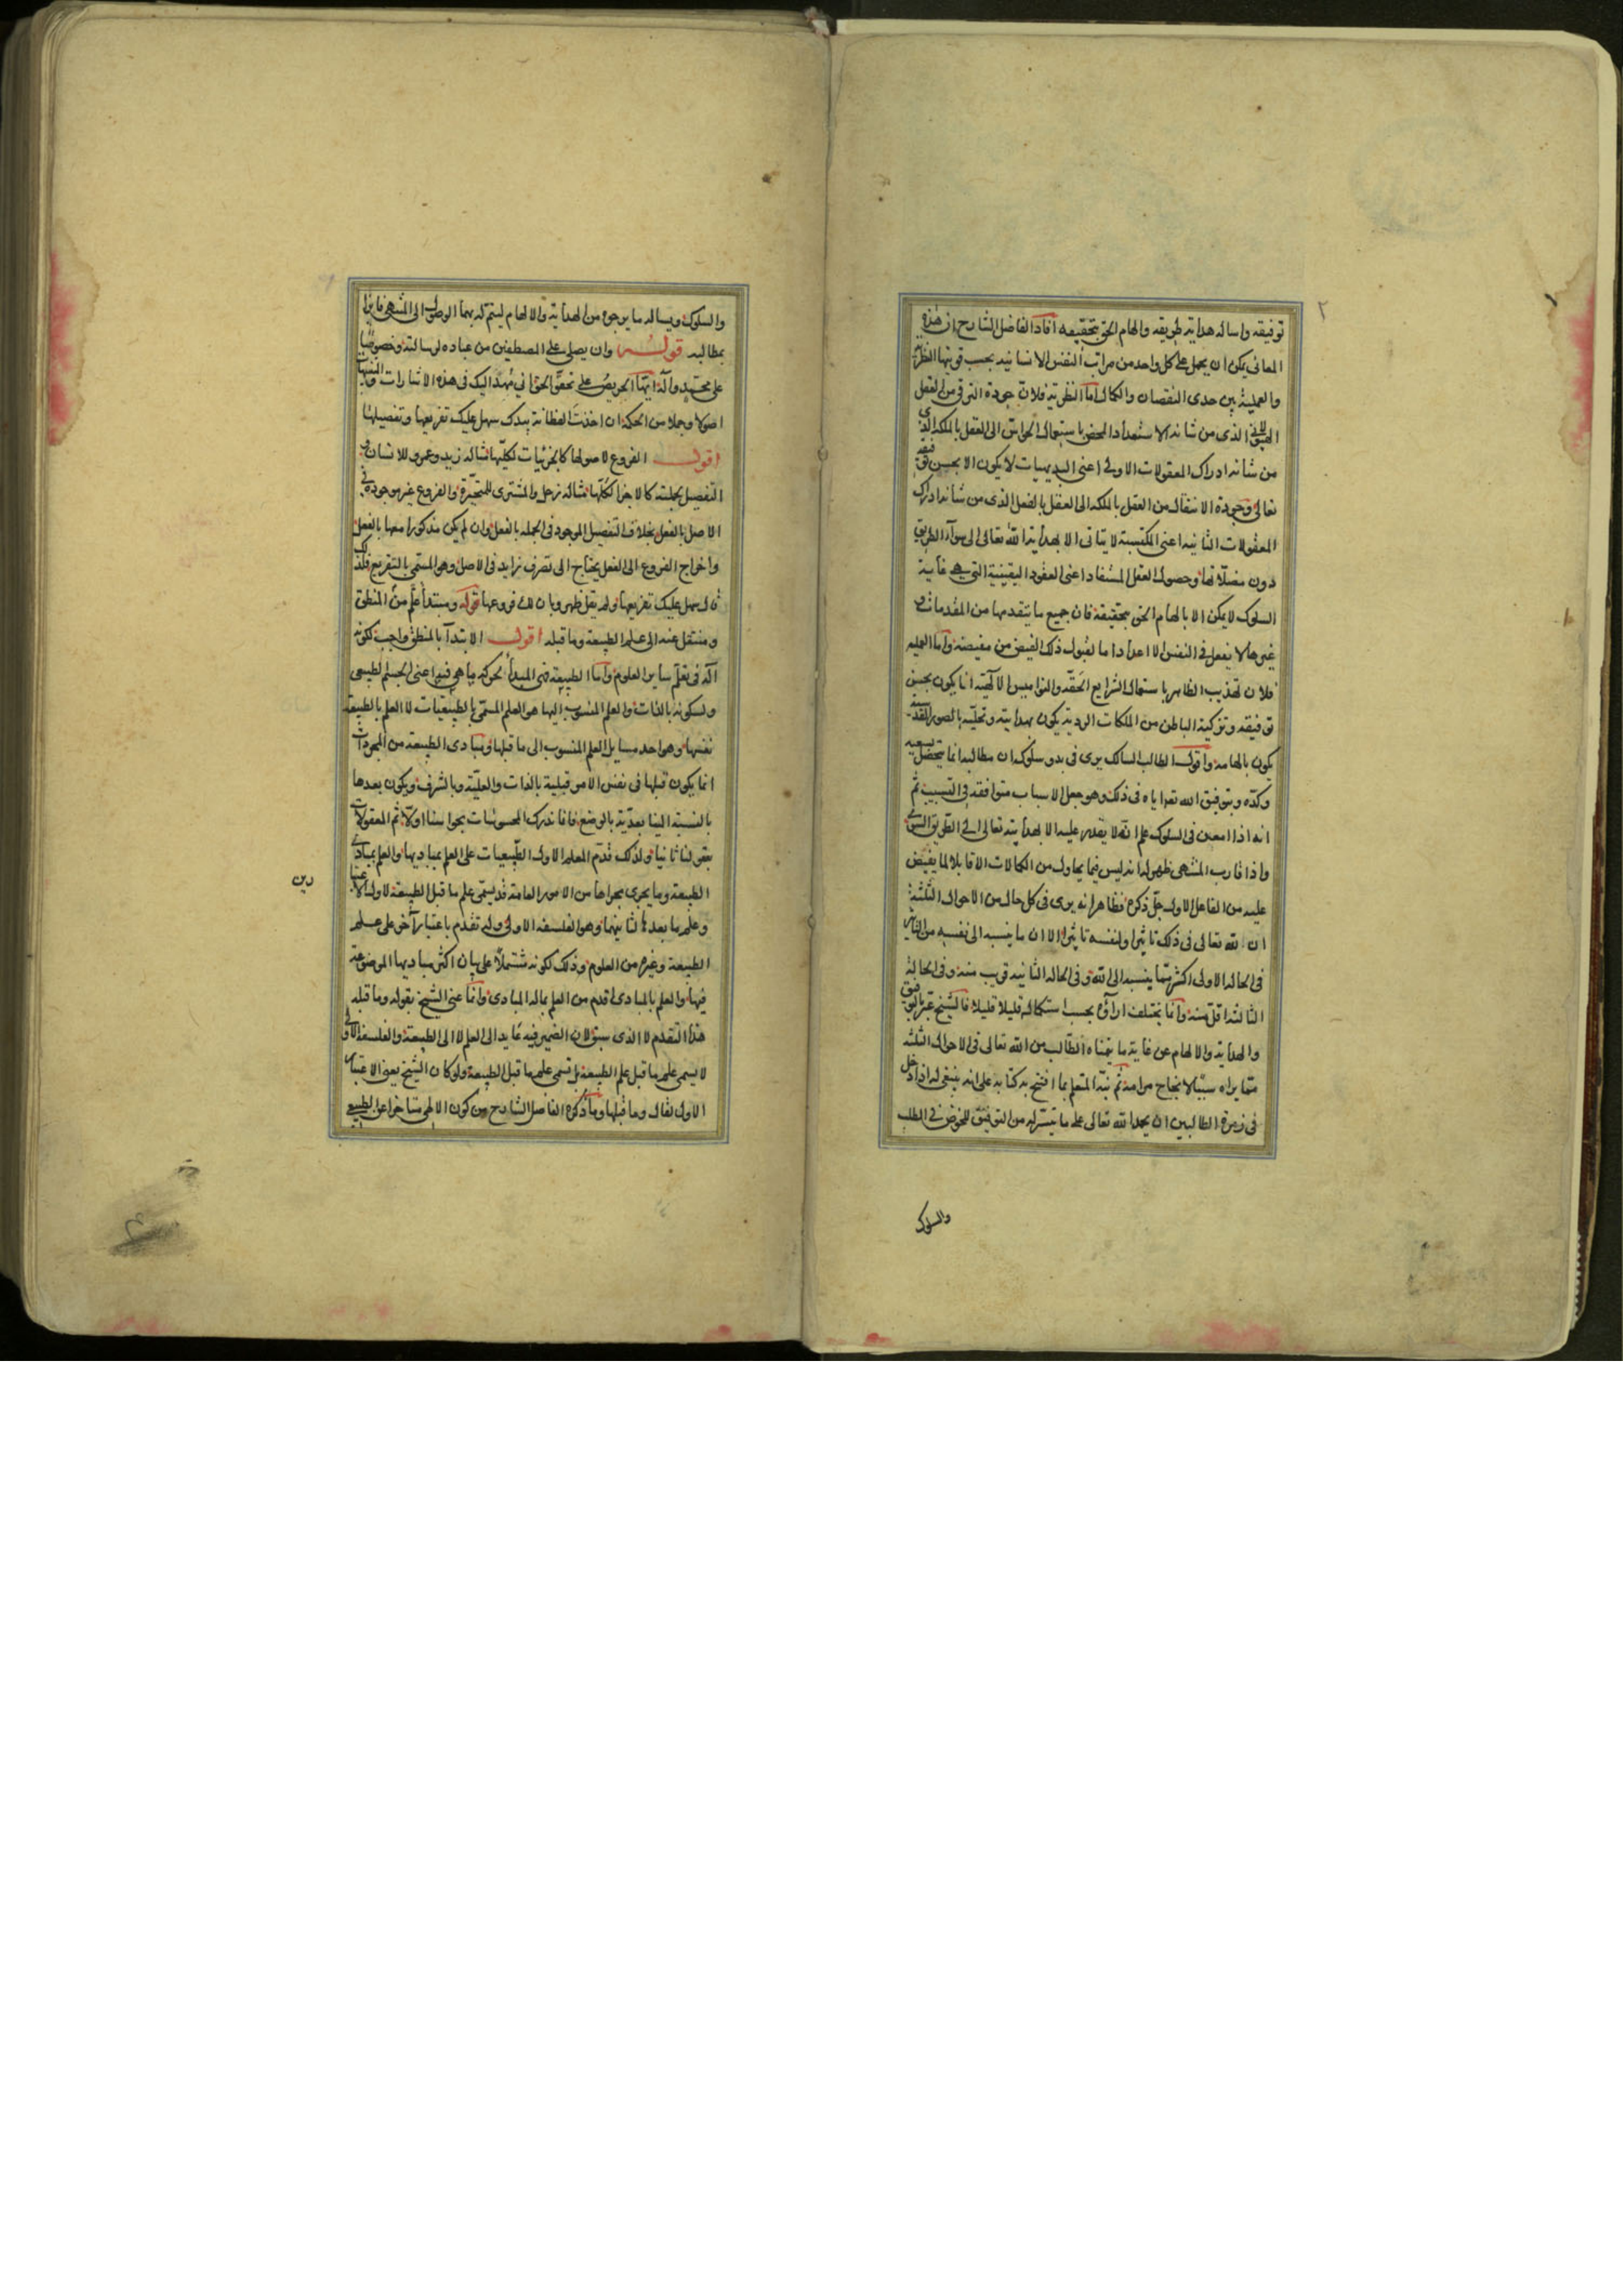 ٢
توفيقه واساله هداية طريقه والهام الحق بتحقيقه افاد الفاضل الشارح ان هذه
المعانى يمكن ان يحمل على كل واحد من مراتب النفس الانسانية بحسب قوتيها النظرية
والعملية بين حدى النقصان والكمال اما النظرية فلان جودة الترقى من العقل
الهيولانى الذى من شانه الاستعداد المحض باستعمال الحواس الى العقل بالملكة الذى
من شانه ادراك المعقولات الاولى اعنى البديهيات لا يكون الا بحسن توفيقه
تعالى وجودة الانتقال من العقل بالملكة الى العقل بالفعل الذى من شانه ادراك
المعقولات الثانية اعنى المكتسبة لا يتاتى الا بهداية الله تعالى الى سوآء الطريق
دون مضلاتها وحصول العقل المستفاد اعنى العقود اليقينية التى هى غاية
السلوك لا يمكن الا بالهام الحق بتحقيقه فان جميع ما يتقدمها من المقدمات و
غيرها لا يفعل فى النفس الا اعدادا ما لقبول ذلك الفيض من مفيضه واما العملية
فلان تهذيب الظاهر باستعمال الشرايع الحقة والنواميس الالهية انما يكون بحسن
توفيقه وتزكية الباطن من الملكات الردية يكون بهدايته وتحلية بالصور القدسية
يكون بالهامه واقول الطالب السالك يرى فى بدو سلوكه ان مطالبه انما يتحصل بسعيه
وكده وبتوفيق الله تعم اياه فى ذلك وهو جعل الاسباب متوافقة فى التسبيب ثم
انه اذا امعن فى السلوك علم انه لا يقدر عليه الا بهدايته تعالى الى الطريق السوى
واذا قارب المنتهى ظهر له انه ليس فيما يحاول من الكمالات الا قابلا لما يفيض
عليه من الفاعل الاول جل ذكره فظاهر انه يرى فى كل حال من الاحوال الثلثة
ان لله تعالى فى ذلك تاثيرا ولنفسه تاثيرا الا ان ما ينسبه الى نفسه من التاثير
فى الحالة الاولى اكثر مما ينسبه الى الله وفى الحالة الثانية قريب منه وفى الحالة
الثالثة اقل منه وانما يختلف ارآؤه بحسب استكماله قليلا قليلا فالشيخ عبر بالتوفيق
والهداية والالهام عن غاية ما يتمناه الطالب من الله تعالى فى الاحوال الثلثة
مما يراه سببا لانجاح مرامه ثم نبه المتعلم بما افتتح به كتابه على انه ينبغى له اذا دخل
فى زمرة الطالبين ان يحمد الله تعالى على ما تيسر له من التوفيق للخوض فى الطلب
والسلوك
والسلوك ويساله ما يرجوه من الهداية والالهام ليتم له بهما الوصول الى المنتهى فايزا
بمطالبه قوله وان يصلى على المصطفين من عباده لرسالته وخصوصا
على محمد وآله ايها الحريص على تحقق الحق انى مهد اليك فى هذه الاشارات والتنبيهات
اصولا وجملا من الحكمة ان اخذت الفطانة بيدك سهل عليك تفريعها وتفصيلها
اقول الفروع لاصولها كالجزئيات لكليتها مثاله زيد وعمرو للانسان و
التفصيل لجملته كالاجزا لكلها مثاله زحل والمشترى للمتحيرة والفروع غير موجودة فى
الاصل بالفعل بخلاف التفصيل الموجود فى الجملة بالفعل وان لم يكن مذكورا معها بالفعل
واخراج الفروع الى الفعل يحتاج الى تصرف زايد فى الاصل وهو المسمى بالتفريع فلذلك
قال سهل عليك تفريعها ولم يقل ظهر وبان لك فروعها قوله ومبتدأ علم من المنطق
ومنتقل عنه الى علم الطبيعة وما قبله اقول الابتدآ بالمنطق واجب لكونه
آلة فى تعلم ساير العلوم واما الطبيعة فهى المبدأ لحركة ما هى فيه اعنى الجسم الطبيعى
ولسكونه بالذات والعلم المنسوب اليها هو العلم المسمى بالطبيعيات لا العلم بالطبيعة
نفسها وهو احد مسايل العلم المنسوب الى ما قبلها فمبادى الطبيعة من المجردات
انما يكون قبلها فى نفس الامر قبلية بالذات والعلية وبالشرف ويكون بعدها
بالنسبة الينا بعدية بالوضع فانا ندرك المحسوسات بحواسنا اولا ثم المعقولات
بعقولنا ثانيا ولذلك قدم المعلم الاول الطبيعيات على العلم بمباديها والعلم بمبادى
الطبيعة وما يجرى مجراها من الامور العامة قد يسمى علم ما قبل الطبيعة لاول الاعتبارين
وعلم ما بعدها لثانيهما وهو الفلسفة الاولى وله تقدم باعتبار آخر على علم
الطبيعة وغيره من العلوم وذلك لكونه مشتملا على بيان اكثر مباديها الموضوعة
فيها والعلم بالمبادى اقدم من العلم بماله المبادى وانما عنى الشيخ بقوله وما قبله
هذا التقدم لا الذى سبق لان الضمير فيه عايد الى العلم لا الى الطبيعة والفلسفة الاولى
لا يسمى علم ما قبل علم الطبيعة بل تسمى علم ما قبل الطبيعة ولو كان الشيخ يعنى الاعتبار
الاول لقال وما قبلها وما ذكره الفاضل الشارح من كون الالهى متاخرا عن الطبيعى